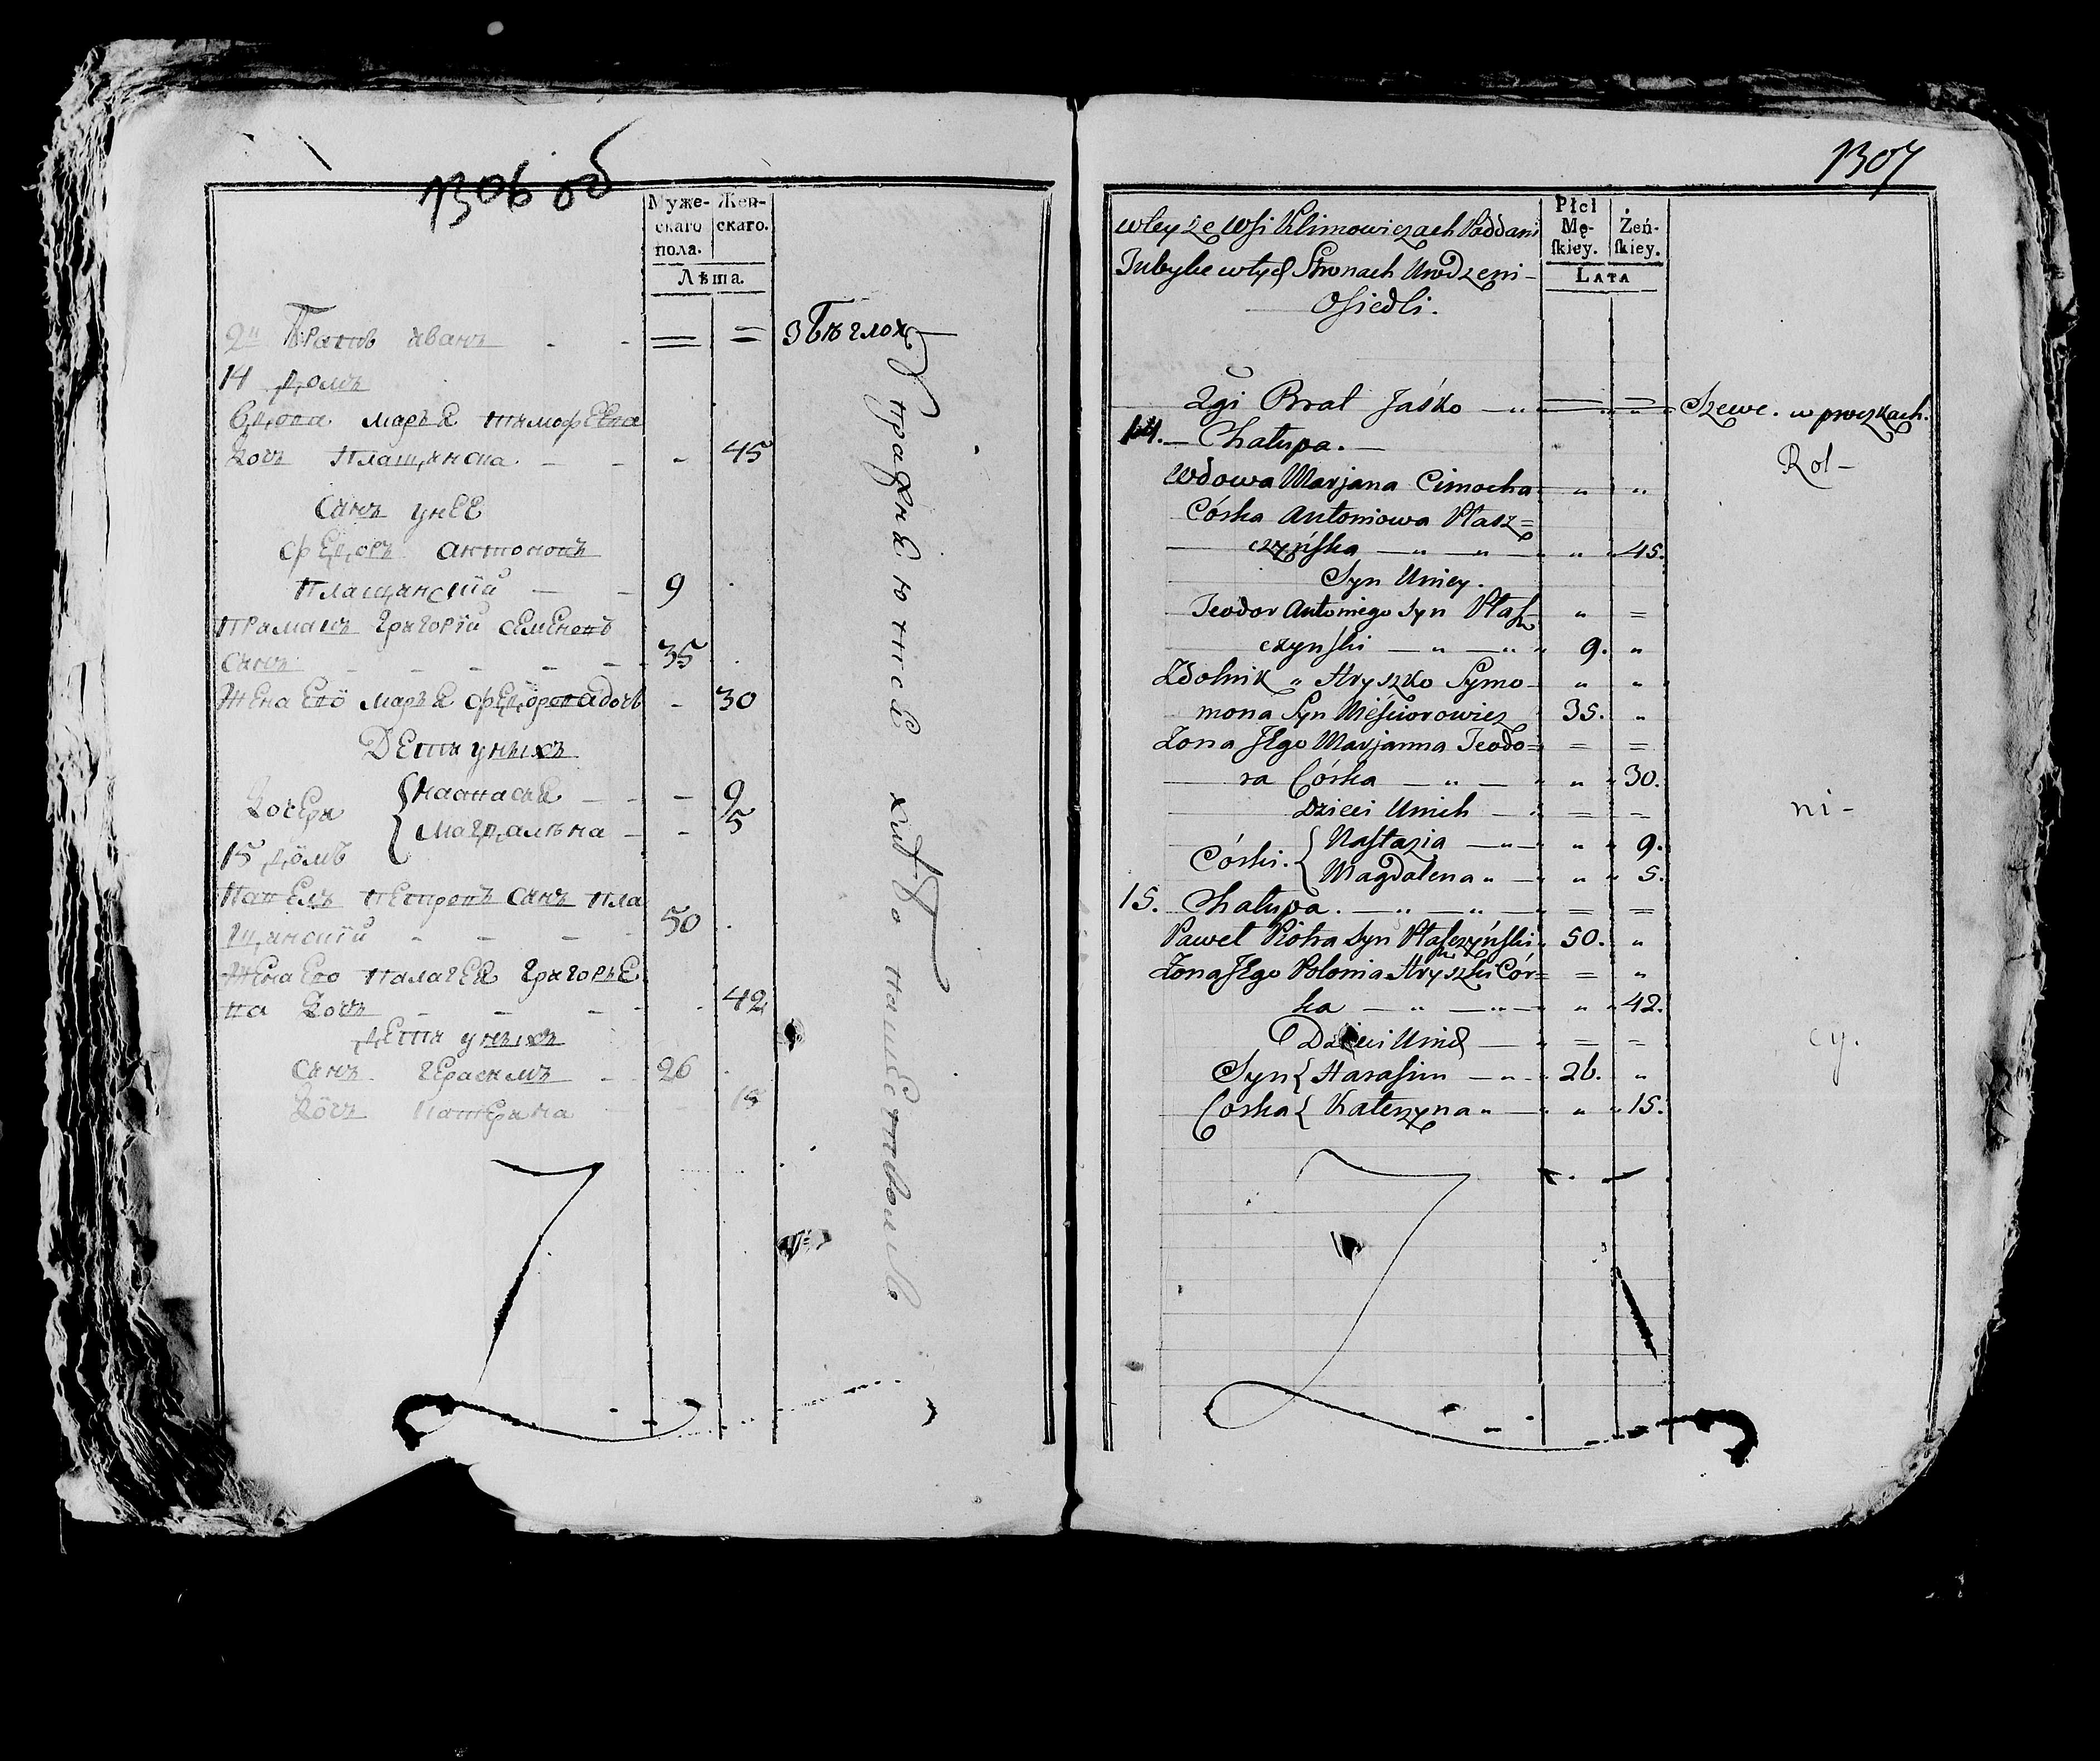 1306 об
Муже-
скаго
пола.
Жен-
скаго.
Лѣта.
2й Братъ иванъ - - = = збѣглой
14 домъ
Вдова марья тимофѣева
дочь Плащинска - - - 45
Сынъ у нее
федоръ антоновъ
Плащинский - - 9
примакъ григорий семеновъ
Сынъ - - - - - 35
жена его марья федорова дочь - 30
Дети у ныхъ
дочери { Наста сья - - - 9
{ магдалена - - 5
15 домъ
Павелъ петровъ сынъ пла
щинский - - - - 50
жена его палагея григорье
ва дочь - - - - - 42
дети у ныхъ
Сынъ герасимъ - 26
дочь Катерина - - 15
Упражняются хлѣбо пашествомъ
1307
wtey że Wsi Klimowiczach Poddani
Tubylce wtych Stronach Urodzeni-
Osiedli.
Płci
Mę-
skiey.
Żeń-
skiey.
LATA
2gi Brat Jaśko — „ Szewc. w proszkach.
14. — Chałupa. —
Rol-
Wdowa Marjana Cimocha „ „
Córka Antoniowa Płasz=
czyńska — „ — „ — „ „ 45.
Syn Uniey.
Teodor Antoniego Syn Płasz- „ =
czynski — „ — „ 9. „
Zdolnik „ Hryszko Symo- „ „
mona Syn Nieściorowicz 35. „
Żona JEgo Marjanna Teodo= = =
ra Córka — „ — „ „ 30.
Dzieci Unich — „ = =
ni-
Córki. { Nastazia — „ — „ 9.
{ Magdalena „ — „ 5.
15. Chałupa. — „ — „ — = =
Paweł Piotra Syn Płaszczyński 50. „
Żona JEgo Polonia Hryszki Cór= = „
ka — „ — „ — „ 42.
Dzieci Unich — = =
cy.
Syn { Harasim — „ — 26. „
Corka { Katerzyna „ — „ 15.